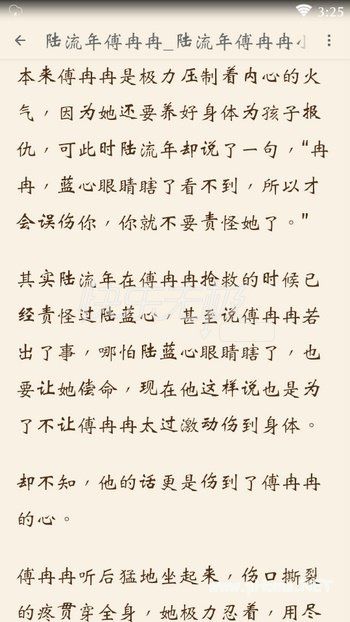 3:25
陆流年傅冉冉_陆流年傅冉冉小
本来傅冉冉是极力压制着内心的火
气，因为她还要养好身体为孩子报
仇，可此时陆流年却说了一句，“冉
冉，蓝心眼睛瞎了看不到，所以才
会误伤你，你就不要责怪她了。”
其实陆流年在傅冉冉抢救的时候已
经责怪过陆蓝心，甚至说傅冉冉若
出了事，哪怕陆蓝心眼睛瞎了，也
要让她偿命，现在他这样说也是为
了不让傅冉冉太过激动伤到身体。
却不知，他的话更是伤到了傅冉冉
的心。
傅冉冉听后猛地坐起来，伤口撕裂
的疼贯穿全身，她极力忍着，用尽